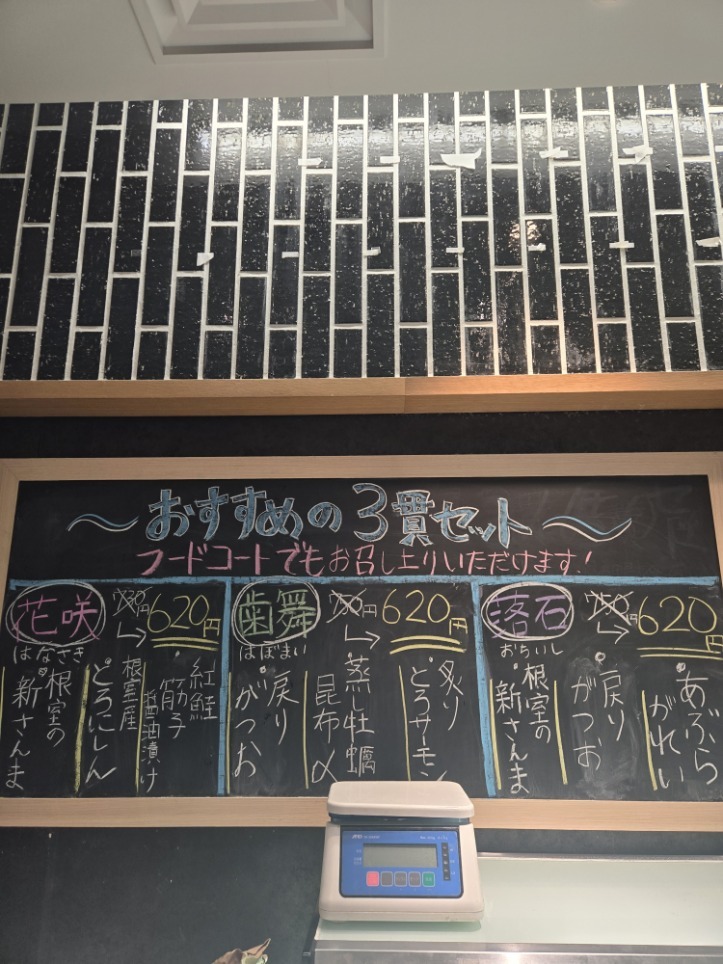 おすすめの3貫セット
フードコートでもお召し上りいただけます!
花咲
はなさき
620円
紅鮭
筋子
醤油漬け
根室産
とろにしん
根室の
新さんま
歯舞
はぼまい
750円
620円
炙り
とろサーモン
蒸し牡蠣
昆布〆
戻り
がつお
落石
おちいし
750円
620円
あぶら
がれい
戻り
がつお
根室の
新さんま